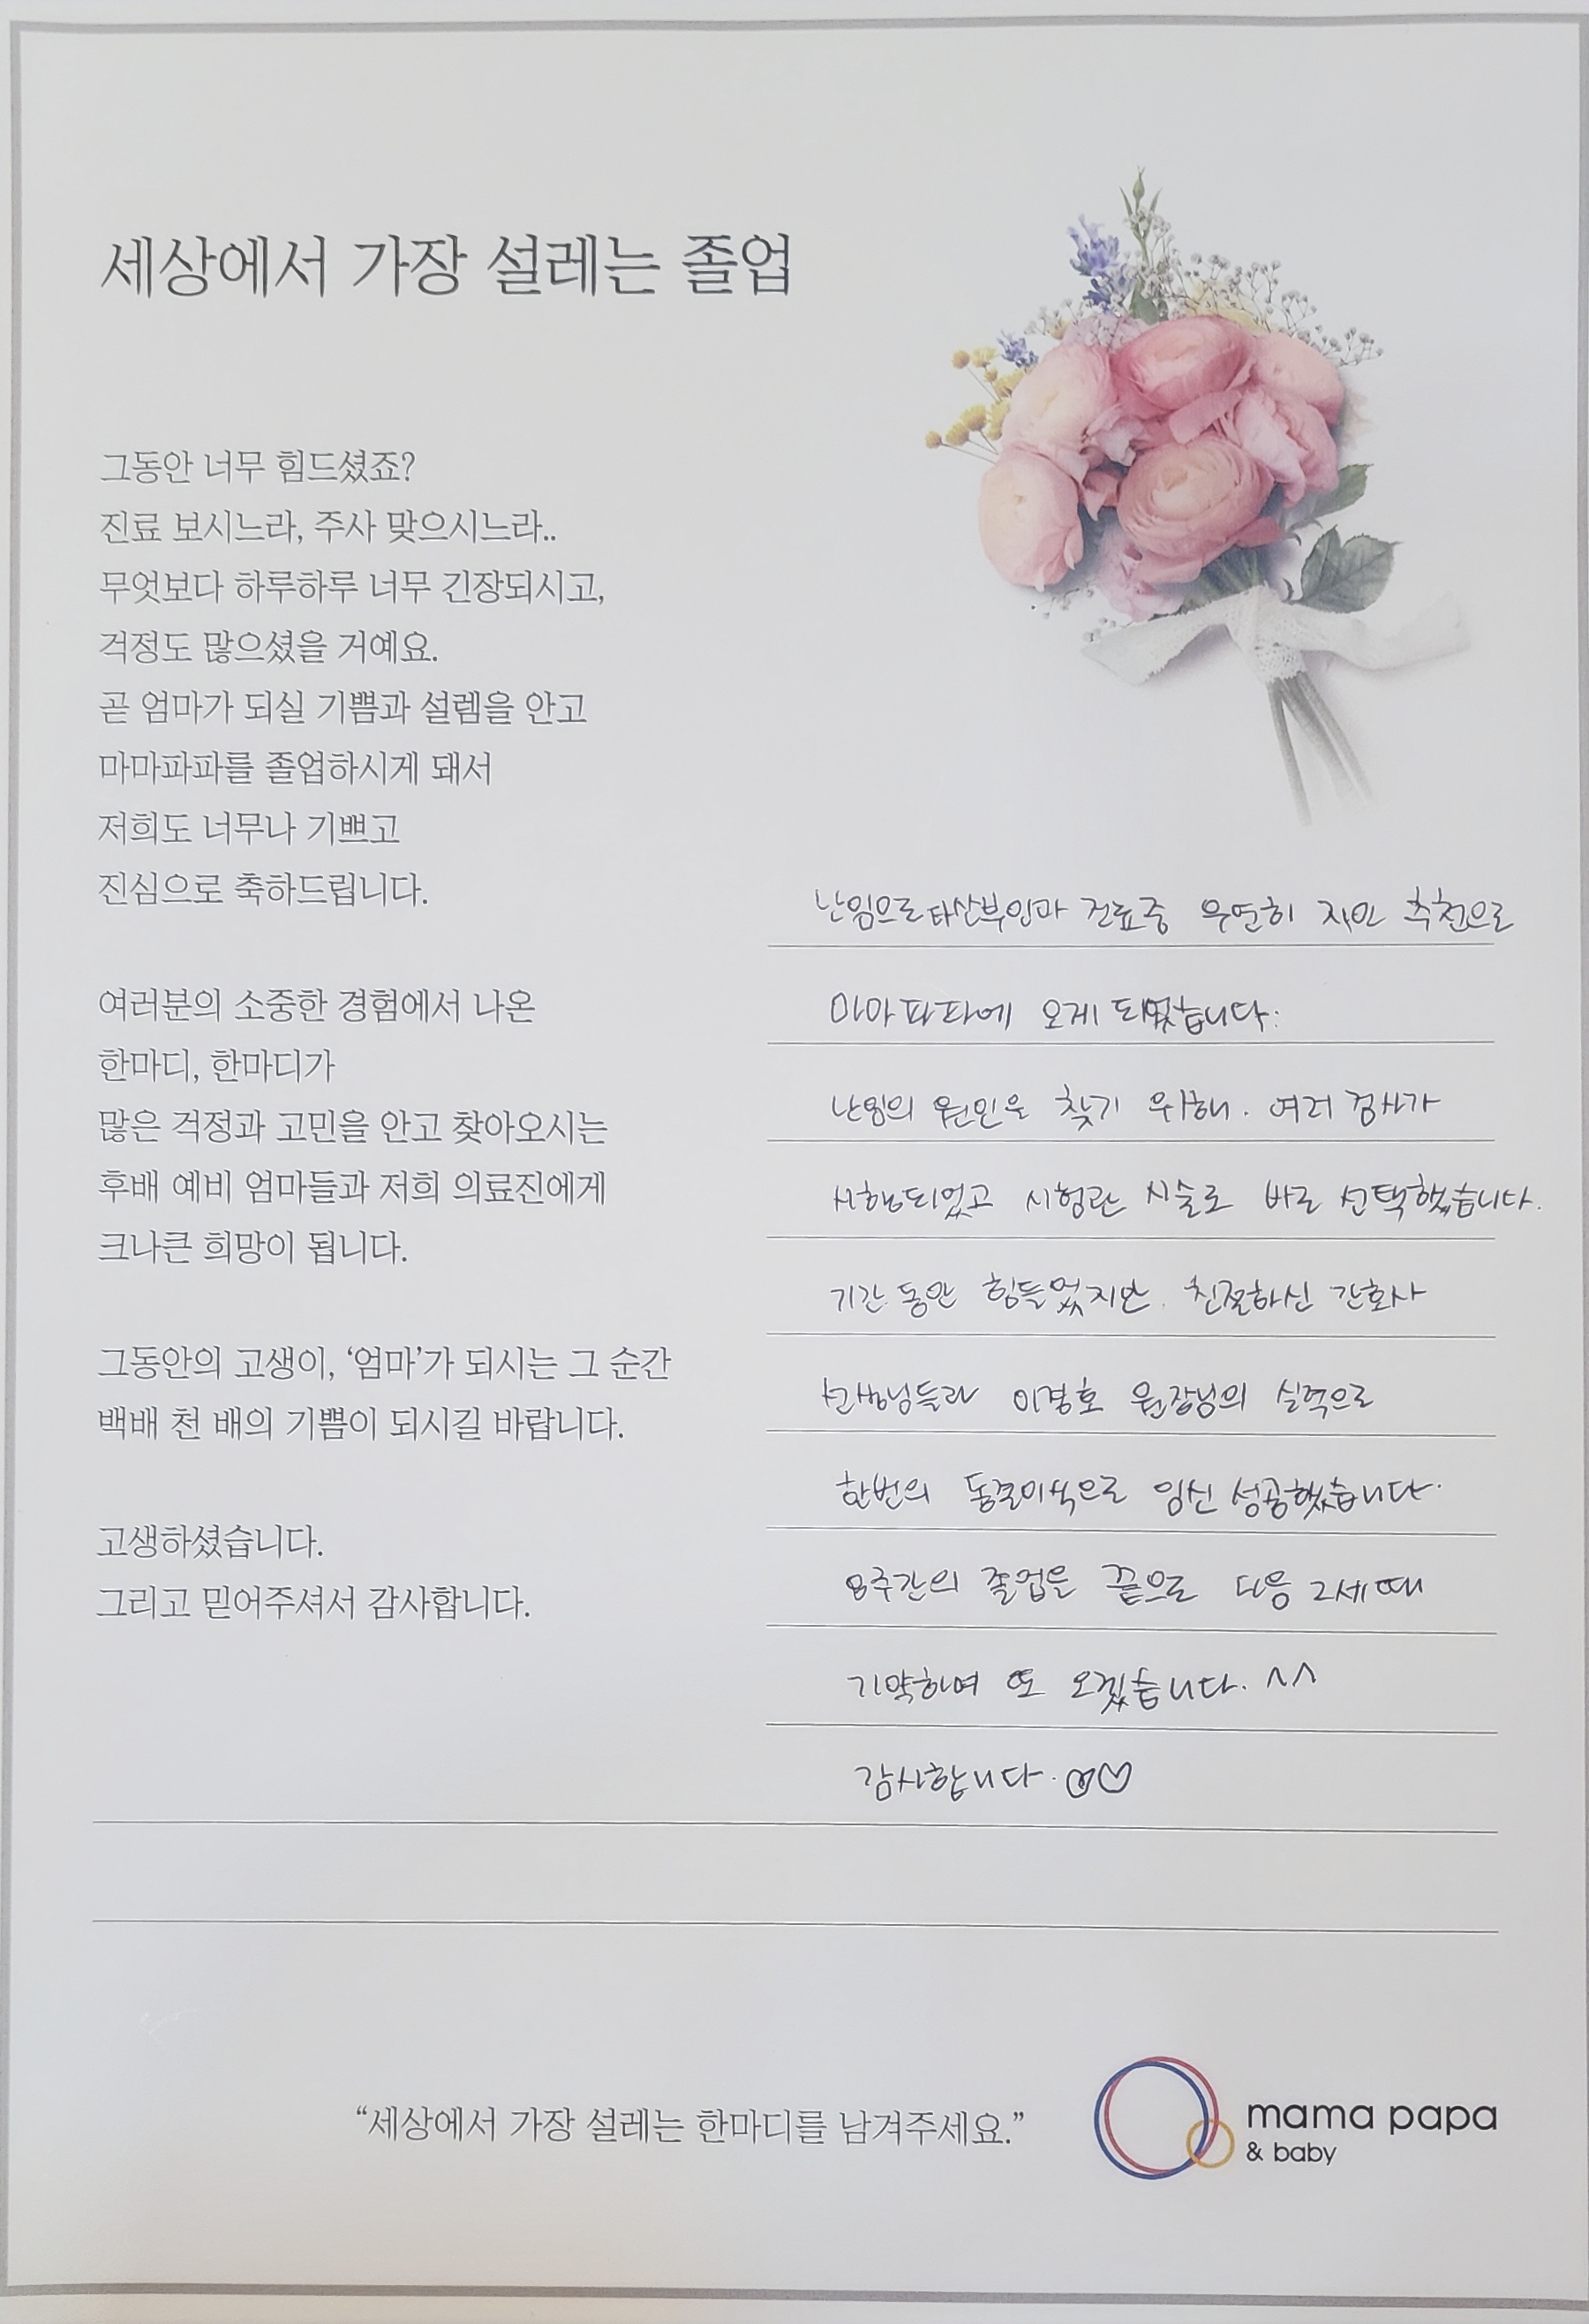 세상에서 가장 설레는 졸업
그동안 너무 힘드셨죠?
진료 보시느라, 주사 맞으시느라..
무엇보다 하루하루 너무 긴장되시고,
걱정도 많으셨을 거예요.
곧 엄마가 되실 기쁨과 설렘을 안고
마마파파를 졸업하시게 돼서
저희도 너무나 기쁘고
진심으로 축하드립니다.
여러분의 소중한 경험에서 나온
한마디, 한마디가
많은 걱정과 고민을 안고 찾아오시는
후배 예비 엄마들과 저희 의료진에게
크나큰 희망이 됩니다.
그동안의 고생이, ‘엄마’가 되시는 그 순간
백배 천 배의 기쁨이 되시길 바랍니다.
고생하셨습니다.
그리고 믿어주셔서 감사합니다.
난임으로 타산부인과 진료중 우연히 지인 추천으로
마마파파에 오게 되었습니다.
난임의 원인을 찾기 위해. 여러 검사가
시행되었고 시험관 시술로 바로 선택했습니다.
기간 동안 힘들었지만, 친절하신 간호사
선생님들과 이경호 원장님의 실력으로
한번의 동결이식으로 임신 성공했습니다.
8주간의 졸업을 끝으로 다음 2세때
기약하여 또 오겠습니다. ^^
감사합니다. ♡♡
“세상에서 가장 설레는 한마디를 남겨주세요.”
mama papa
& baby